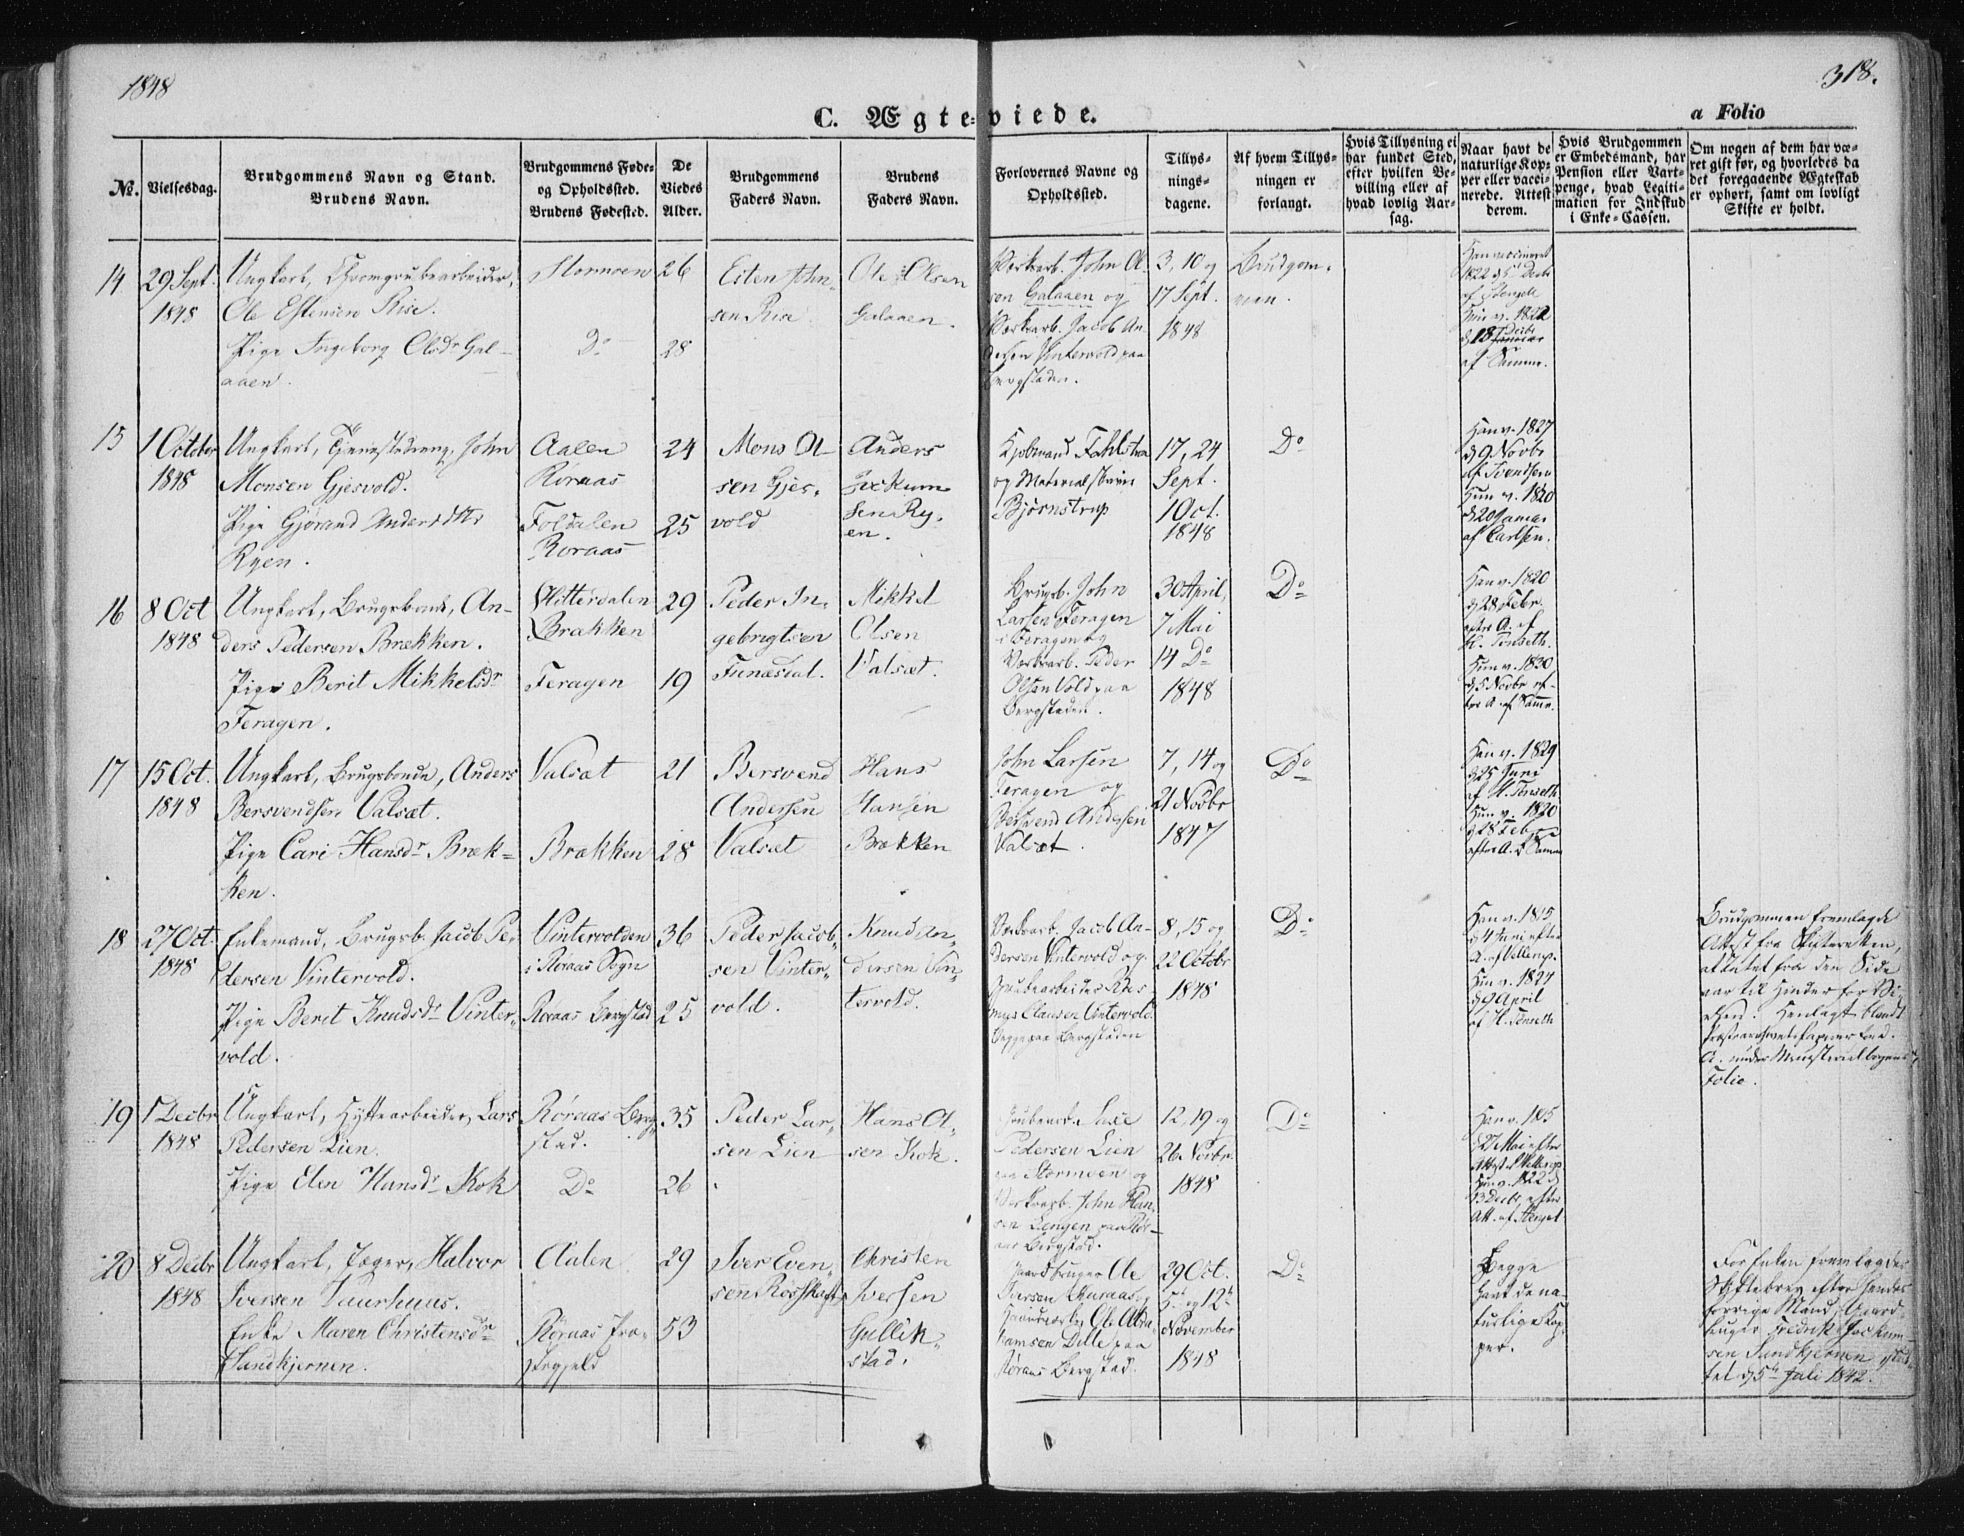 1848
318.
C. Ægteviede.
a Folio
No.
Vielsesdag.
Brudgommens Navn og Stand.
Brudens Navn.
Brudgommens Føde-
og Opholdssted.
Brudens Fødested.
De
Viedes
Alder.
Brudgommens
Faders Navn.
Brudens
Faders Navn.
Forlovernes Navne og
Opholdssted.
Tillys-
nings-
dagene.
Af hvem Tillys-
ningen er
forlangt.
Hvis Tillysning ei
har fundet Sted,
efter hvilken Be-
villing eller af
hvad lovlig Aar-
sag.
Naar havt de
naturlige Kop-
per eller vacci-
nerede. Attest
derom.
Hvis Brudgommen
er Embedsmand, har
Pension eller Vart-
penge, hvad Legiti-
mation for Indskud
i Enke-Cassen.
Om nogen af dem har væ-
ret gift før, og hvorledes da
det foregaaende Ægteskab
er ophørt, samt om lovligt
Skifte er holdt.
14
29 Sept.
1848
Ungkarl, Chromgrubearbeider,
Ole Estensen Rise.
Pige Ingeborg Olsdr Gal-
aaen.
Stormoen
Do
26
28
Esten John-
sen Rise
Ole Olsen
Galaaen.
Værksarb. John Ol-
sen Galaaen og
Værksarb. Jacob An-
dersen Vintervold paa
Bergstaden.
3, 10 og
17 Sept.
1848
Brudgom-
men.
Han vaccineret
1822 d 5 Decbr
af Stengel
Hun v. 1822
d 18 Decbr
af Samme.
15
1 October
1848
Ungkarl, Tjenestedreng, John
Monsen Gjesvold.
Pige Gjørand Andersdtr
Ryen.
Aalen
Røraas
Foldalen
Røraas
24
25
Mons Ol-
sen Gjes-
vold
Anders
Jockum
sen Ry-
en.
Kjøbmand Fahlstrøm
og Materialskriver
Bjørnstrup
17, 24
Sept.
1 Oct.
1848
Do
Han v. 1827
d 9 Novbr
af Svendsen
Hun v. 1820
d 20 Januar
af Carlsen.
16
8 Oct
1848
Ungkarl, Brugsbonde, An-
ders Pedersen Brækken.
Pige Berit Mikkelsdr
Feragen.
Hitterdalen
Brækken
Feragen
29
19
Peder In-
gebrigtsen
Funæsdal.
Mikkel
Olsen
Valsæt.
Brugsb. John
Larsen Feragen
i Feragen og
Værksarb. Peder
Olsen Vold paa
Bergstaden.
30 April,
7 Mai
14 Do
1848
Do
Han v. 1820
d 28 Febr.
efter A. af
H. Tønseth.
Hun v. 1830
d 5 Novbr ef-
ter A. af Samme.
17
15 Oct.
1848
Ungkarl, Brugsbonde, Anders
Bersvendsen Valsæt.
Pige Cari Hansdr Bræk-
ken.
Valsæt
Brækken
21
28
Bersvend
Andersen
Valsæt
Hans
Hansen
Brækken
John Larsen
Feragen og
Bersvend Andersen
Valsæt.
7, 14 og
21 Novbr
1847
Do
Han v. 1829
d 25 Juni
af H. Tønseth
Hun v. 1820
d 28 Febr
efter A. af Samme
18
27 Oct.
1848
Enkemand, Brugsb. Jacob Pe-
dersen Vintervold.
Pige Berit Knudsdr Vinter-
vold.
Vintervolden
i Røraas Sogn
Røraas Bergstad
36
25
Peder Jacob-
sen Vinter-
vold.
Knud An-
dersen Vin-
tervold.
Værksarb. Jacob An-
dersen Vintervold og
Grubearbeider Ras-
mus Clausen Vintervold
Begge paa Bergstaden
8, 15 og
22 Octobr
1848
Do
Han v. 1815
d 4 Juni efter
A. af Vellerup.
Hun v. 1824
d 9 April
af H. Tønseth
Brudgommen fremlagde
Attest fra Skifteretten,
at Intet fra den Side
var til Hinder for Vi-
elsen. Henlagt blandt
A. under Ministerialbogens
Folio.
19
1 Decbr
1848
Ungkarl, Hyttearbeider, Lars
Pedersen Lien.
Pige Elen Hansdr Kok
Røraas Berg-
stad.
Do
35
26
Peder Lar-
sen Lien
Hans Ol-
sen Kok.
Grubearb.
Pedersen Lien
paa Stormoen og
Værksarb. John Han-
sen Længen paa Rør-
aas Bergstad.
12, 19 og
26 Novbr.
1848
Do
Han v. 1815
d 27 Mai efter
Attest af Vellerup
Hun v. 1822 d
13 Decbr. efter
Att. af Stengel
20
8 Decbr
1848
Ungkarl, Jæger, Halvor
Iversen Aurhuus.
Enke Maren Christensdr
Sandkjernen.
Aalen
Røraas Præ-
stegjeld
29
53
Iver Even-
sen Rosskaft
Christen
Iversen
Gullik-
stad.
Gaardbruger Ole
Iversen Aunaas og
Haandværker Ole Abra-
hamsen Delle paa
Røraas Bergstad
29 Oct.
5te og 12te
November
1848
Do
Begge
havt de na-
turlige Kop-
per.
For Enken fremlagdes
Skiftebrev efter hendes
forrige Mand, Gaard-
bruger Fredrik Jockum-
sen Sandkjernen, slut-
tet d 5te Juli 1842.